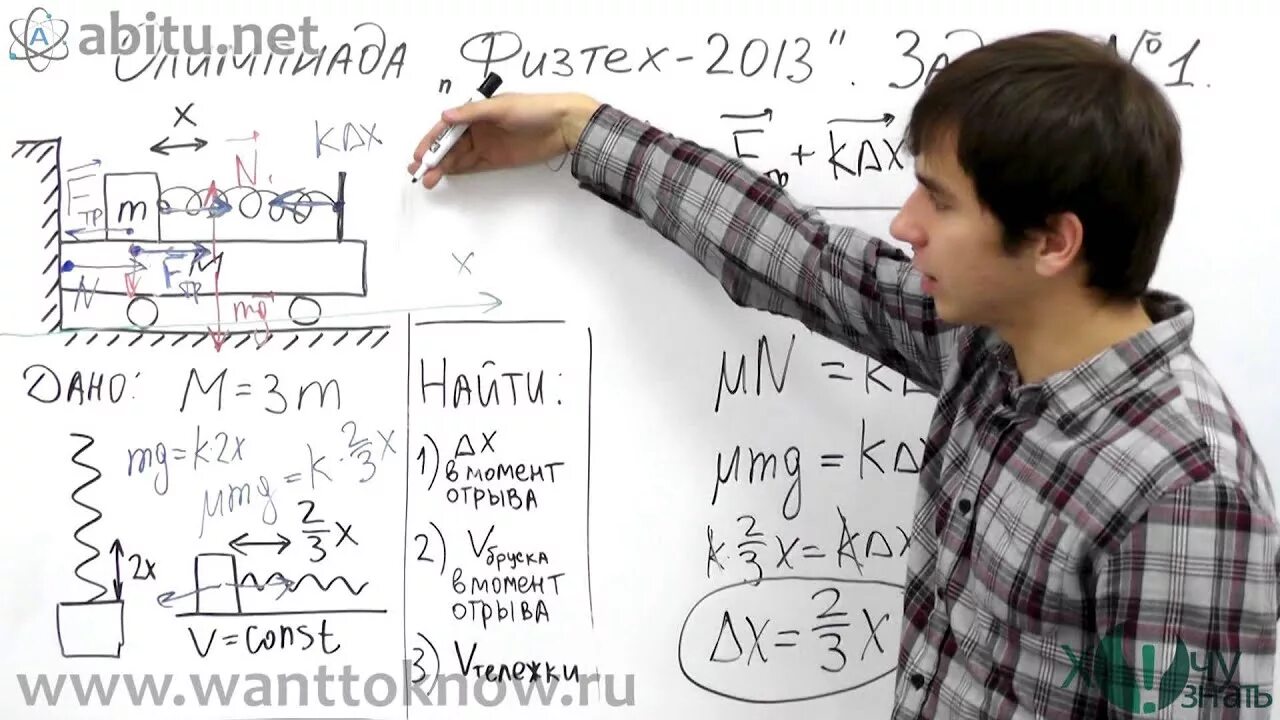 abitu.net
Олимпиада "Физтех-2013". За №1.
x
kΔx
N
Fтр + kΔx
Fтр
m
x
N
Fтр
M
mg
Дано: M = 3m
mg = k·2x
μmg = k·2/3x
2/3x
2x
V = const
Найти:
1) Δx
в момент
отрыва
2) Vбруска
в момент
отрыва
3) Vтележки
μN = k
μmg = kΔ
k·2/3x = kΔx
Δx = 2/3x
www.wanttoknow.ru
Хочу
знать